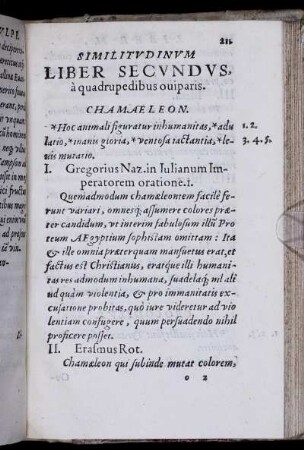 211
SIMILITVDINVM
LIBER SECVNDVS,
à quadrupedibus ouiparis.
CHAMAELEON.
*Hoc animali figuratur inhumanitas, *adu 1. 2.
latio, *inanis gloria, *ventosa iactantia, *le- 3. 4. 5.
uis mutatio.
I. Gregorius Naz. in Iulianum Im-
peratorem oratione.1.
Quemadmodum chamæleontem facilè fe-
runt variari, omnesq; assumere colores præ-
ter candidum, vt interim fabulosum illū Pro
teum AEgyptium sophistam omittam: Ita
& ille omnia præterquam mansuetus erat, et
factus est Christianus, eratq́ue illi humani
tas res admodum inhumana, suadelaq; nil ali
ud quàm violentia, & pro immanitatis ex-
cusatione probitas, quò iure videretur ad vio
lentiam confugere, quum persuadendo nihil
proficere posset.
II. Erasmus Rot.
Chamæleon qui subinde mutat colorem,
o 2